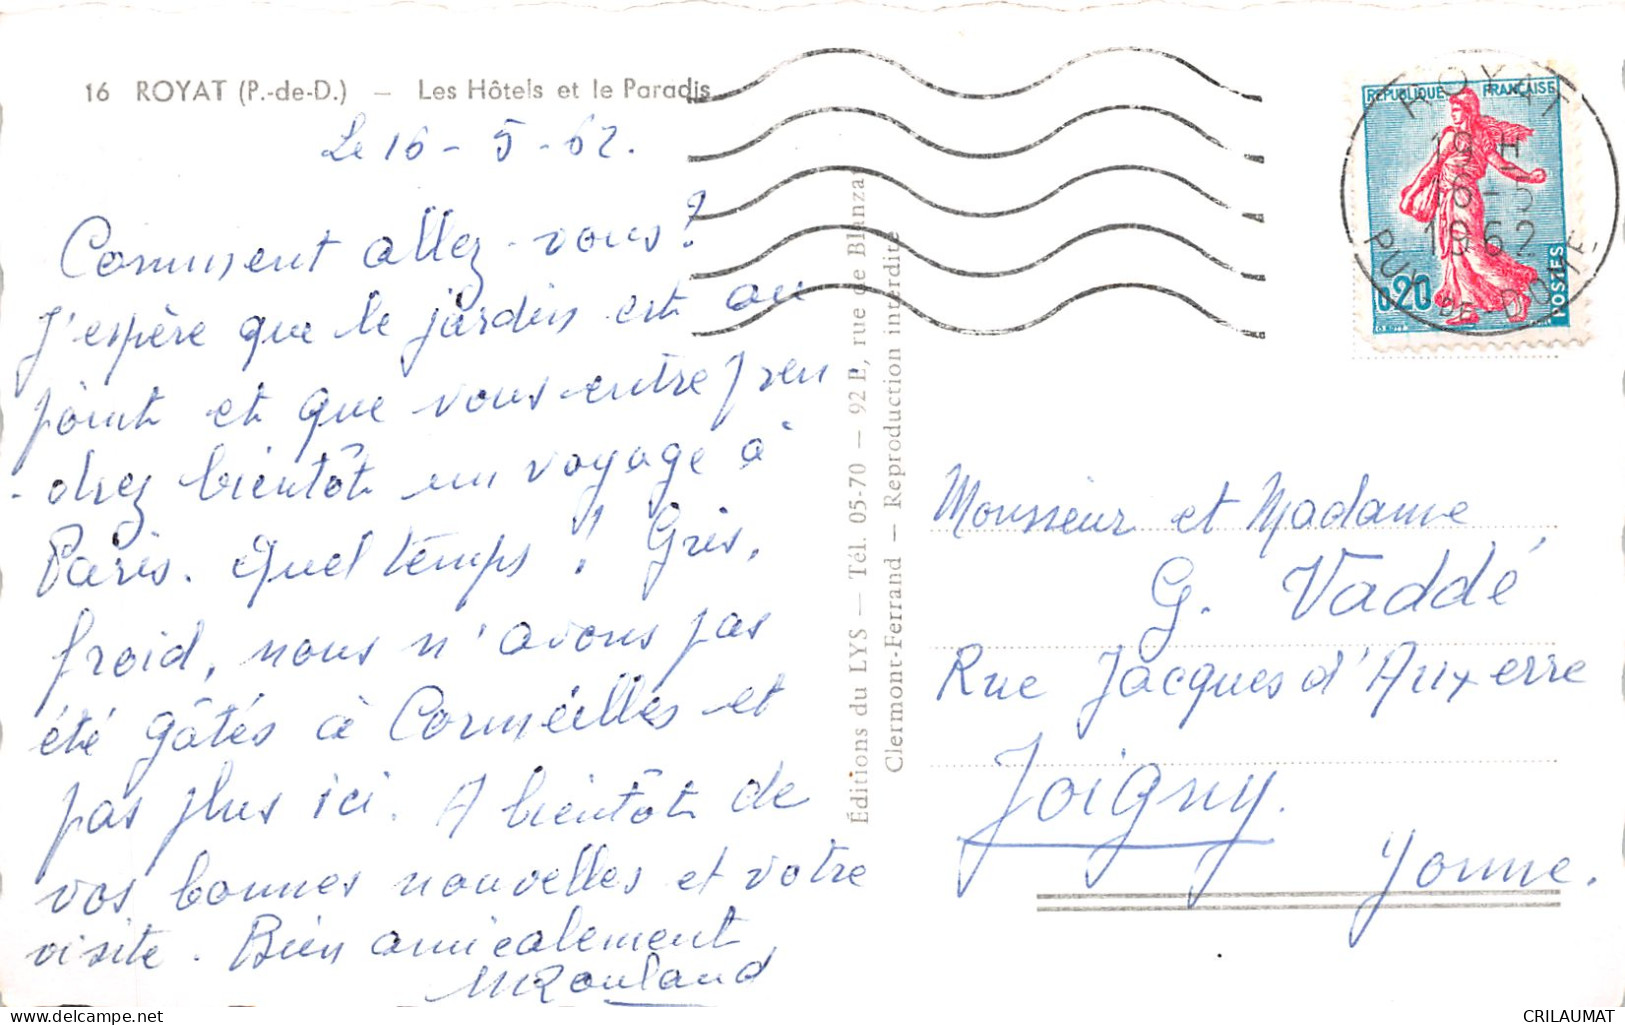 16 ROYAT (P.-de-D.) — Les Hôtels et le Paradis
Le 16 - 5 - 62.
Comment allez-vous?
J'espère que le jardin est au
point et que vous entrepren
-drez bientôt un voyage à
Paris. Quel temps! Gris,
froid, nous n'avons pas
été gâtés à Corméilles et
pas plus ici. A bientôt de
vos bonnes nouvelles et votre
visite. Bien amicalement
MRouland
Éditions du LYS — Tél. 05-70 — 92 B, rue de Blanzat
Clermont-Ferrand — Reproduction interdite
REPUBLIQUE FRANÇAISE
0,20
POSTES
ROYAT
19 H
16-5
1962
PUY-DE-DOME
Monsieur et Madame,
G. Vaddé
Rue Jacques d'Auxerre
Joigny.
Yonne.
CRILAUMAT
www.delcampe.net